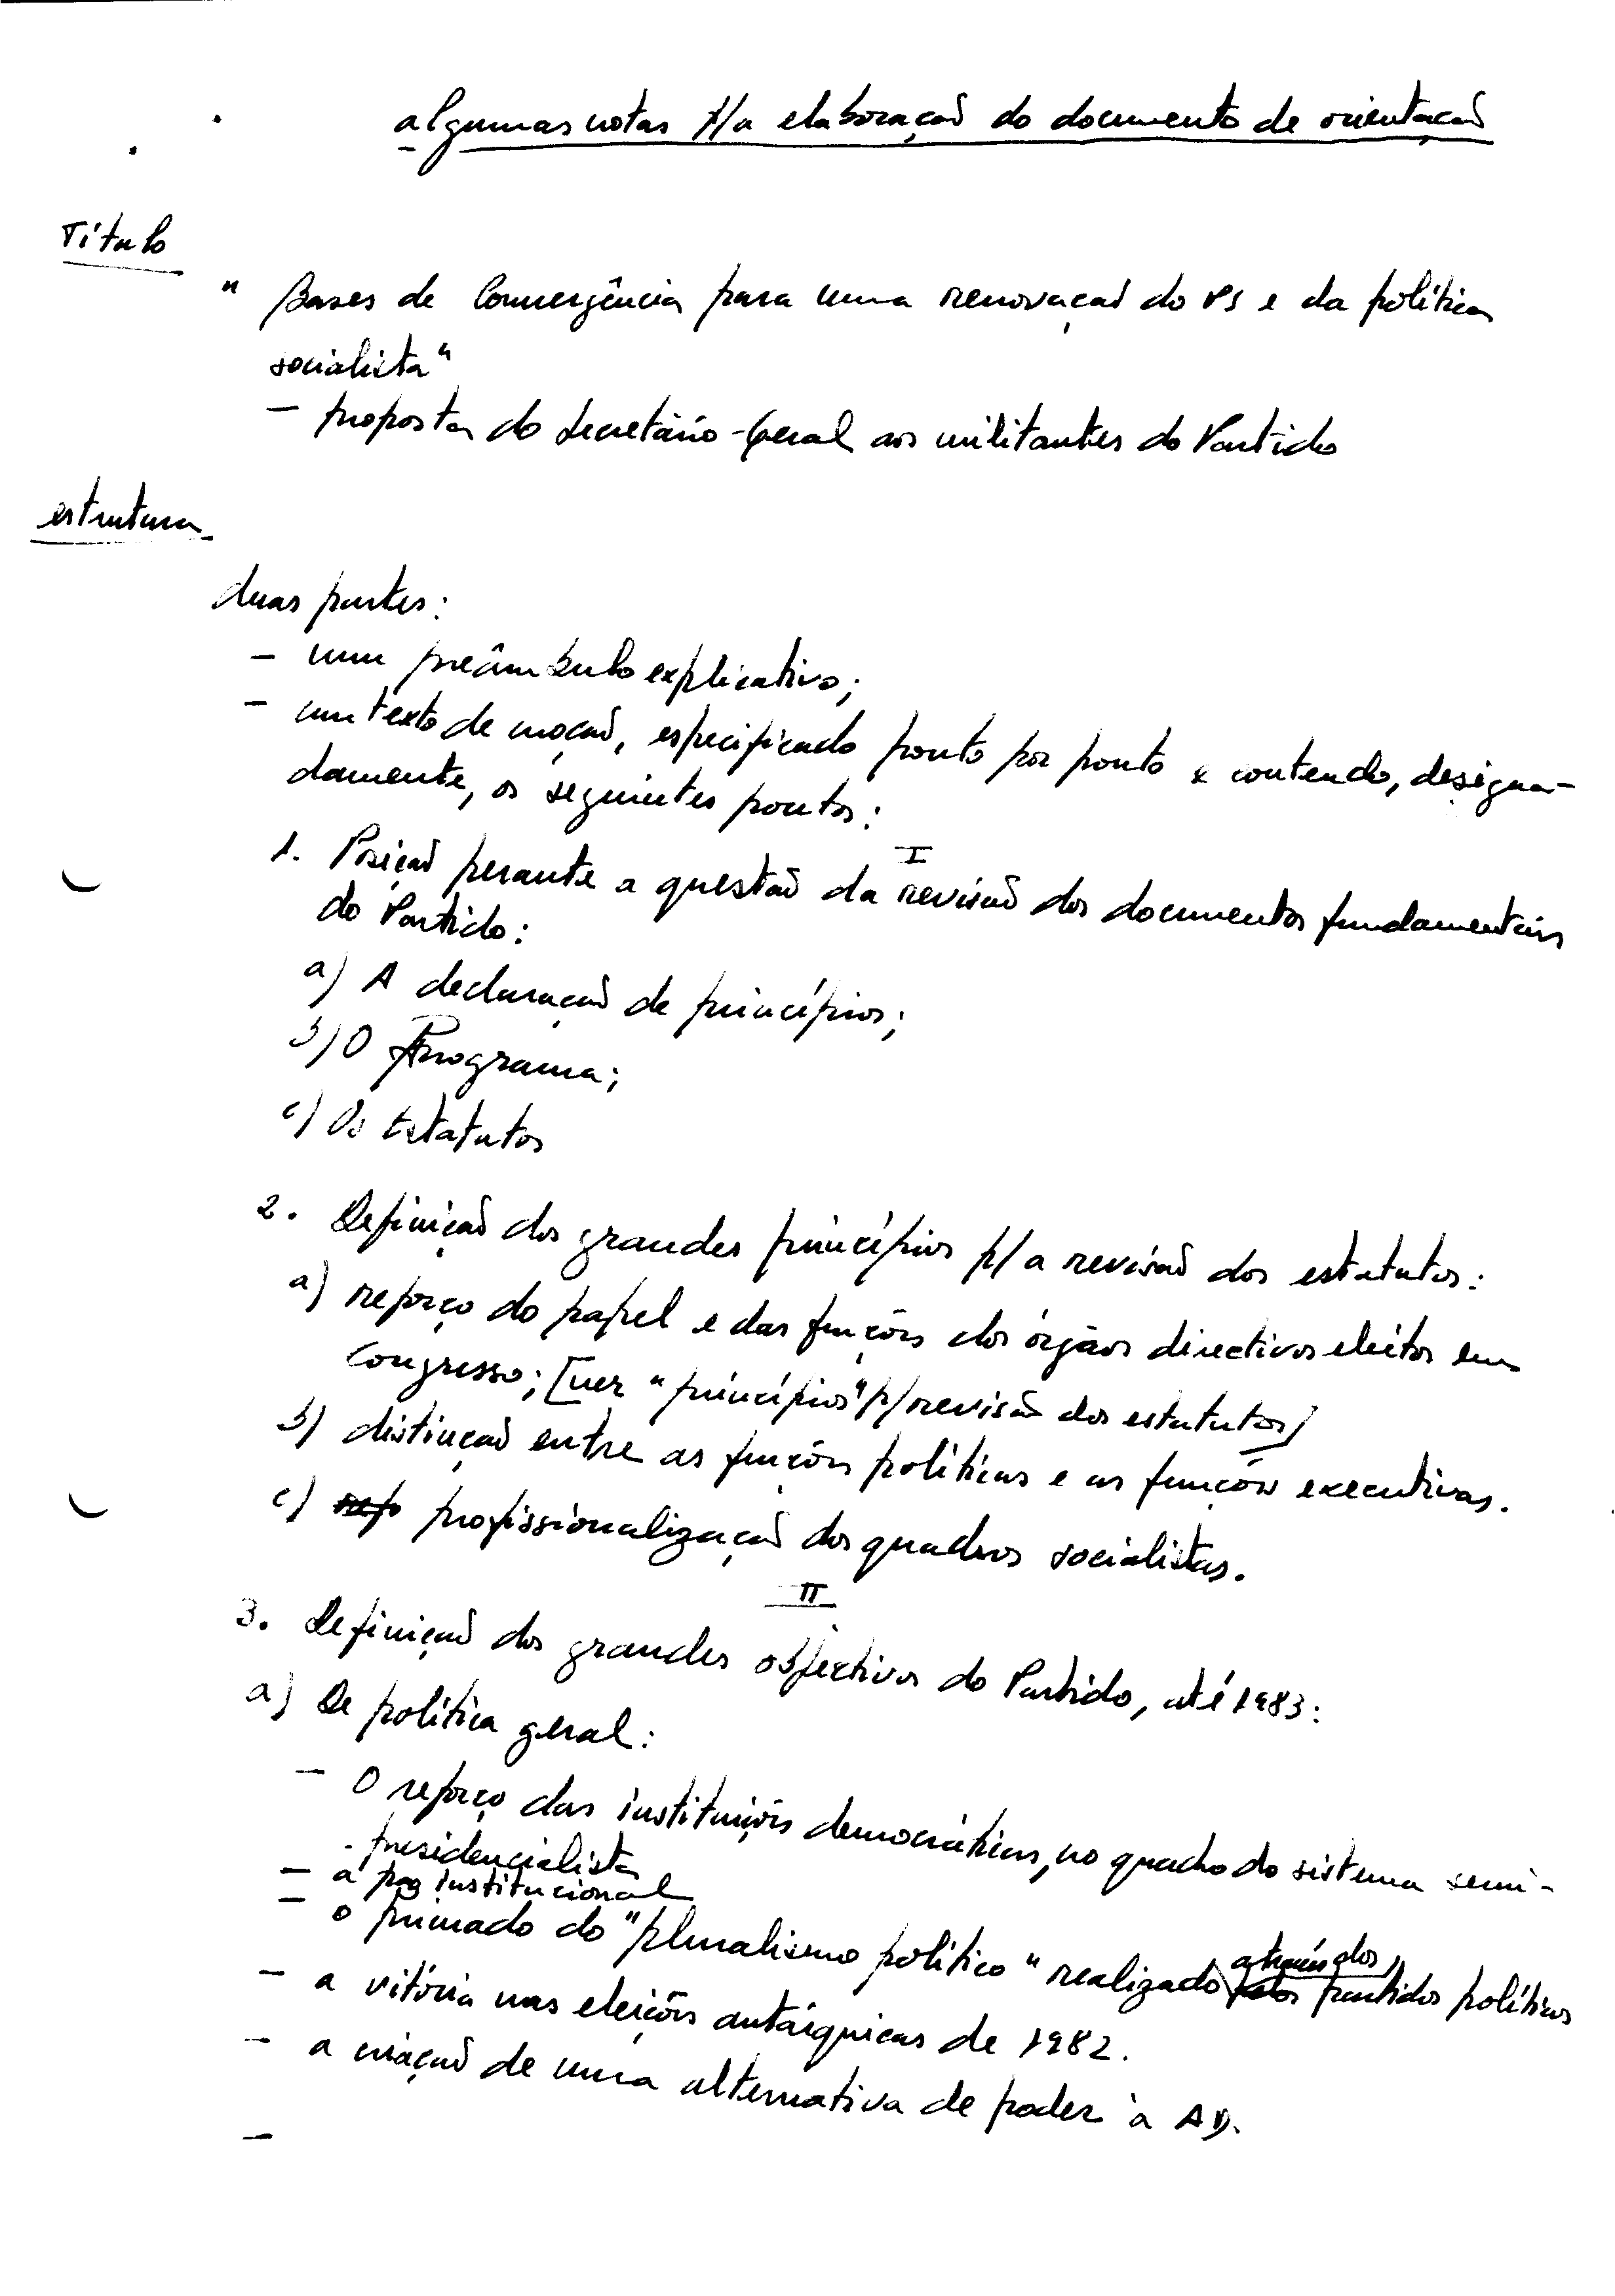 algumas notas p/a elaboração do documento de orientação
Título
" Bases de Convergência para uma renovação do PS e da política
socialista"
- proposta do Secretário-Geral aos militantes do Partido
estrutura
duas partes:
- um preâmbulo explicativo;
- um texto de moção, especificado ponto por ponto e contendo, designa-
damente, os seguintes pontos:
I
1. Posição perante a questão da revisão dos documentos fundamentais
do Partido:
a) A declaração de princípios;
b) O Programa;
c) Os Estatutos
2. Definição dos grandes princípios p/ a revisão dos estatutos:
a) reforço do papel e das funções dos órgãos directivos eleitos em
Congresso; [ver "princípios" p/ revisão dos estatutos]
b) distinção entre as funções políticas e as funções executivas.
c) refo profissionalização dos quadros socialistas.
II
3. Definição dos grandes objectivos do Partido, até 1983:
a) De política geral:
- O reforço das instituições democráticas, no quadro do sistema semi-
presidencialista
- a paz institucional
- o primado do "pluralismo político" realizado pelos através dos partidos políticos
- a vitória nas eleições autárquicas de 1982.
- a criação de uma alternativa de poder à AD.
-